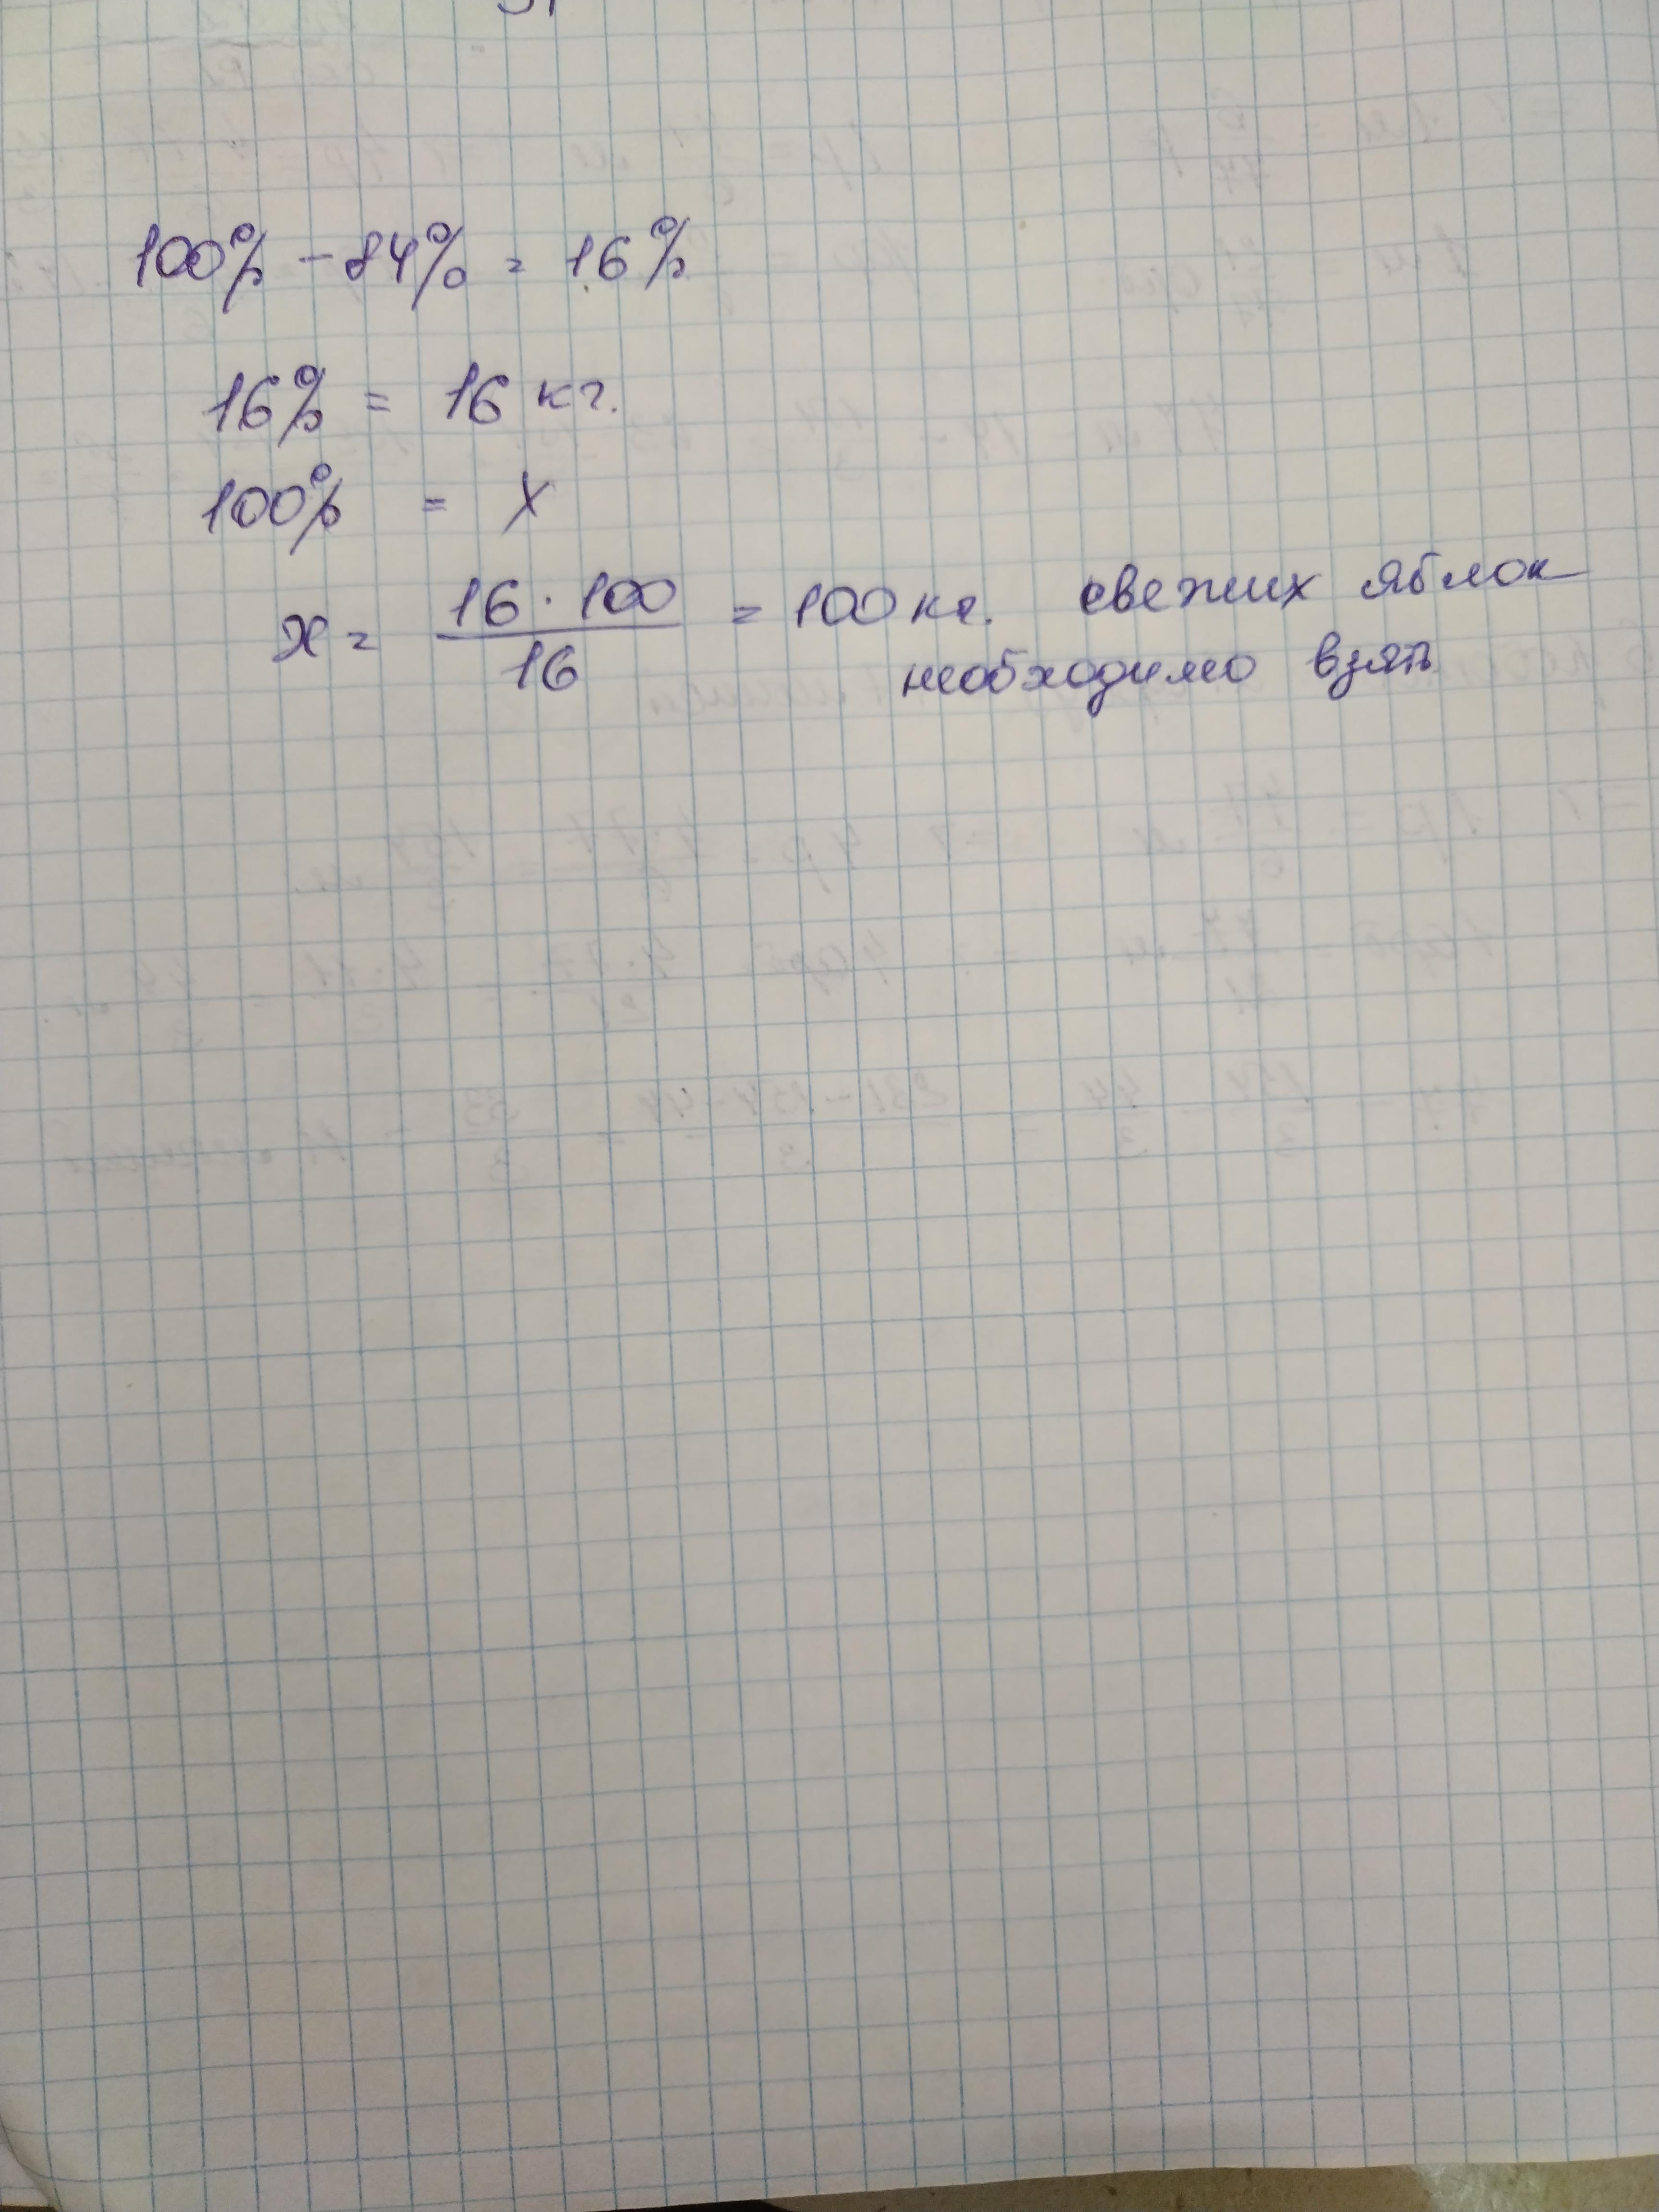 100% - 84% = 16%
16% = 16 кг.
100% = X
x = 16 · 100 / 16 = 100 кг. свежих яблок
необходимо взять